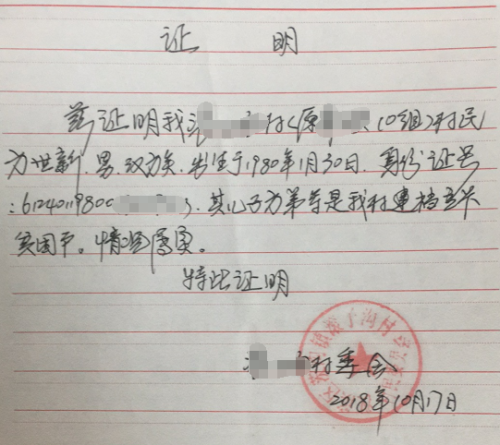 证 明
兹证明我 村(原 (0组)村民
方世新,男,汉族,出生于1980年1月30日,身份证号
:612401980 ,其儿子方弟等是我村建档立卡
贫困户。情况属实。
特此证明
村委会
2018年10月17日